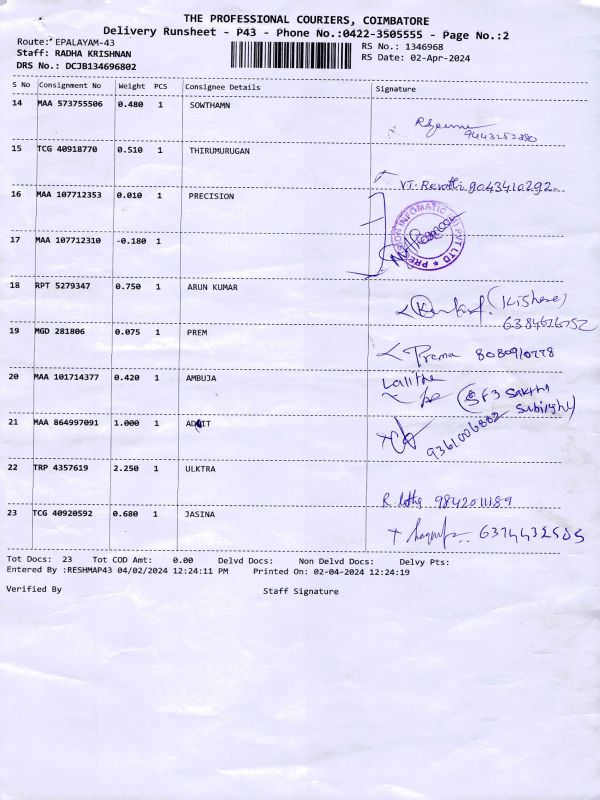 THE PROFESSIONAL COURIERS, COIMBATORE
Delivery Runsheet - P43 - Phone No.:0422-3505555 - Page No.:2
Route: EPALAYAM-43
RS No.: 1346968
Staff: RADHA KRISHNAN
RS Date: 02-Apr-2024
DRS No.: DCJB134696802
S No Consignment No Weight PCS Consignee Details Signature
14 MAA 573755506 0.480 1 SOWTHAMN
15 TCG 40918770 0.510 1 THIRUMURUGAN
VT. Revathi 9043410292
16 MAA 107712353 0.010 1 PRECISION
17 MAA 107712310 -0.180 1
18 RPT 5279347 0.750 1 ARUN KUMAR
(Kishore)
19 MGD 281806 0.075 1 PREM
Prema
20 MAA 101714377 0.420 1 AMBUJA
Lalitha
SF3 Sakthi
21 MAA 864997091 1.000 1
9361006882
22 TRP 4357619 2.250 1 ULKTRA
23 TCG 40920592 0.680 1 JASINA
Tot Docs: 23 Tot COD Amt: 0.00 Delvd Docs: Non Delvd Docs: Delvy Pts:
Entered By :RESHMAP43 04/02/2024 12:24:11 PM Printed On: 02-04-2024 12:24:19
Verified By Staff Signature